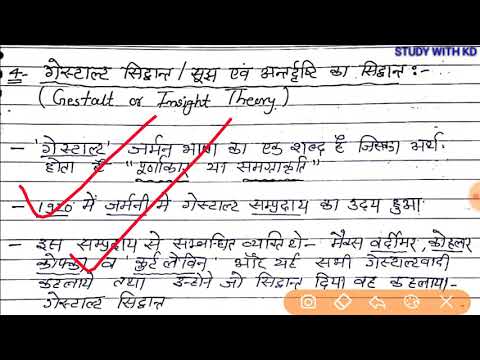 STUDY WITH KD
4- गेस्टाल्ट सिद्वान्त / सूझ एवं अन्तर्दृष्टि का सिद्वान्त :-
(Gestalt or Insight Theory)
- 'गेस्टाल्ट' जर्मन भाषा का एक शब्द है जिसका अर्थ
होता है "पूर्णाकार या समग्राकृति"
- 1920 में जर्मनी में गेस्टाल्ट सम्प्रदाय का उदय हुआ
- इस सम्प्रदाय से सम्बन्धित व्यक्ति थे- मैक्स वर्दीमर, कोहलर
कोफ्का व 'कुर्ट लेविन' और यह सभी गेस्टाल्टवादी
कहलाये तथा उन्होने जो सिद्वान्त दिया वह कहलाया-
गेस्टाल्ट सिद्वान्त